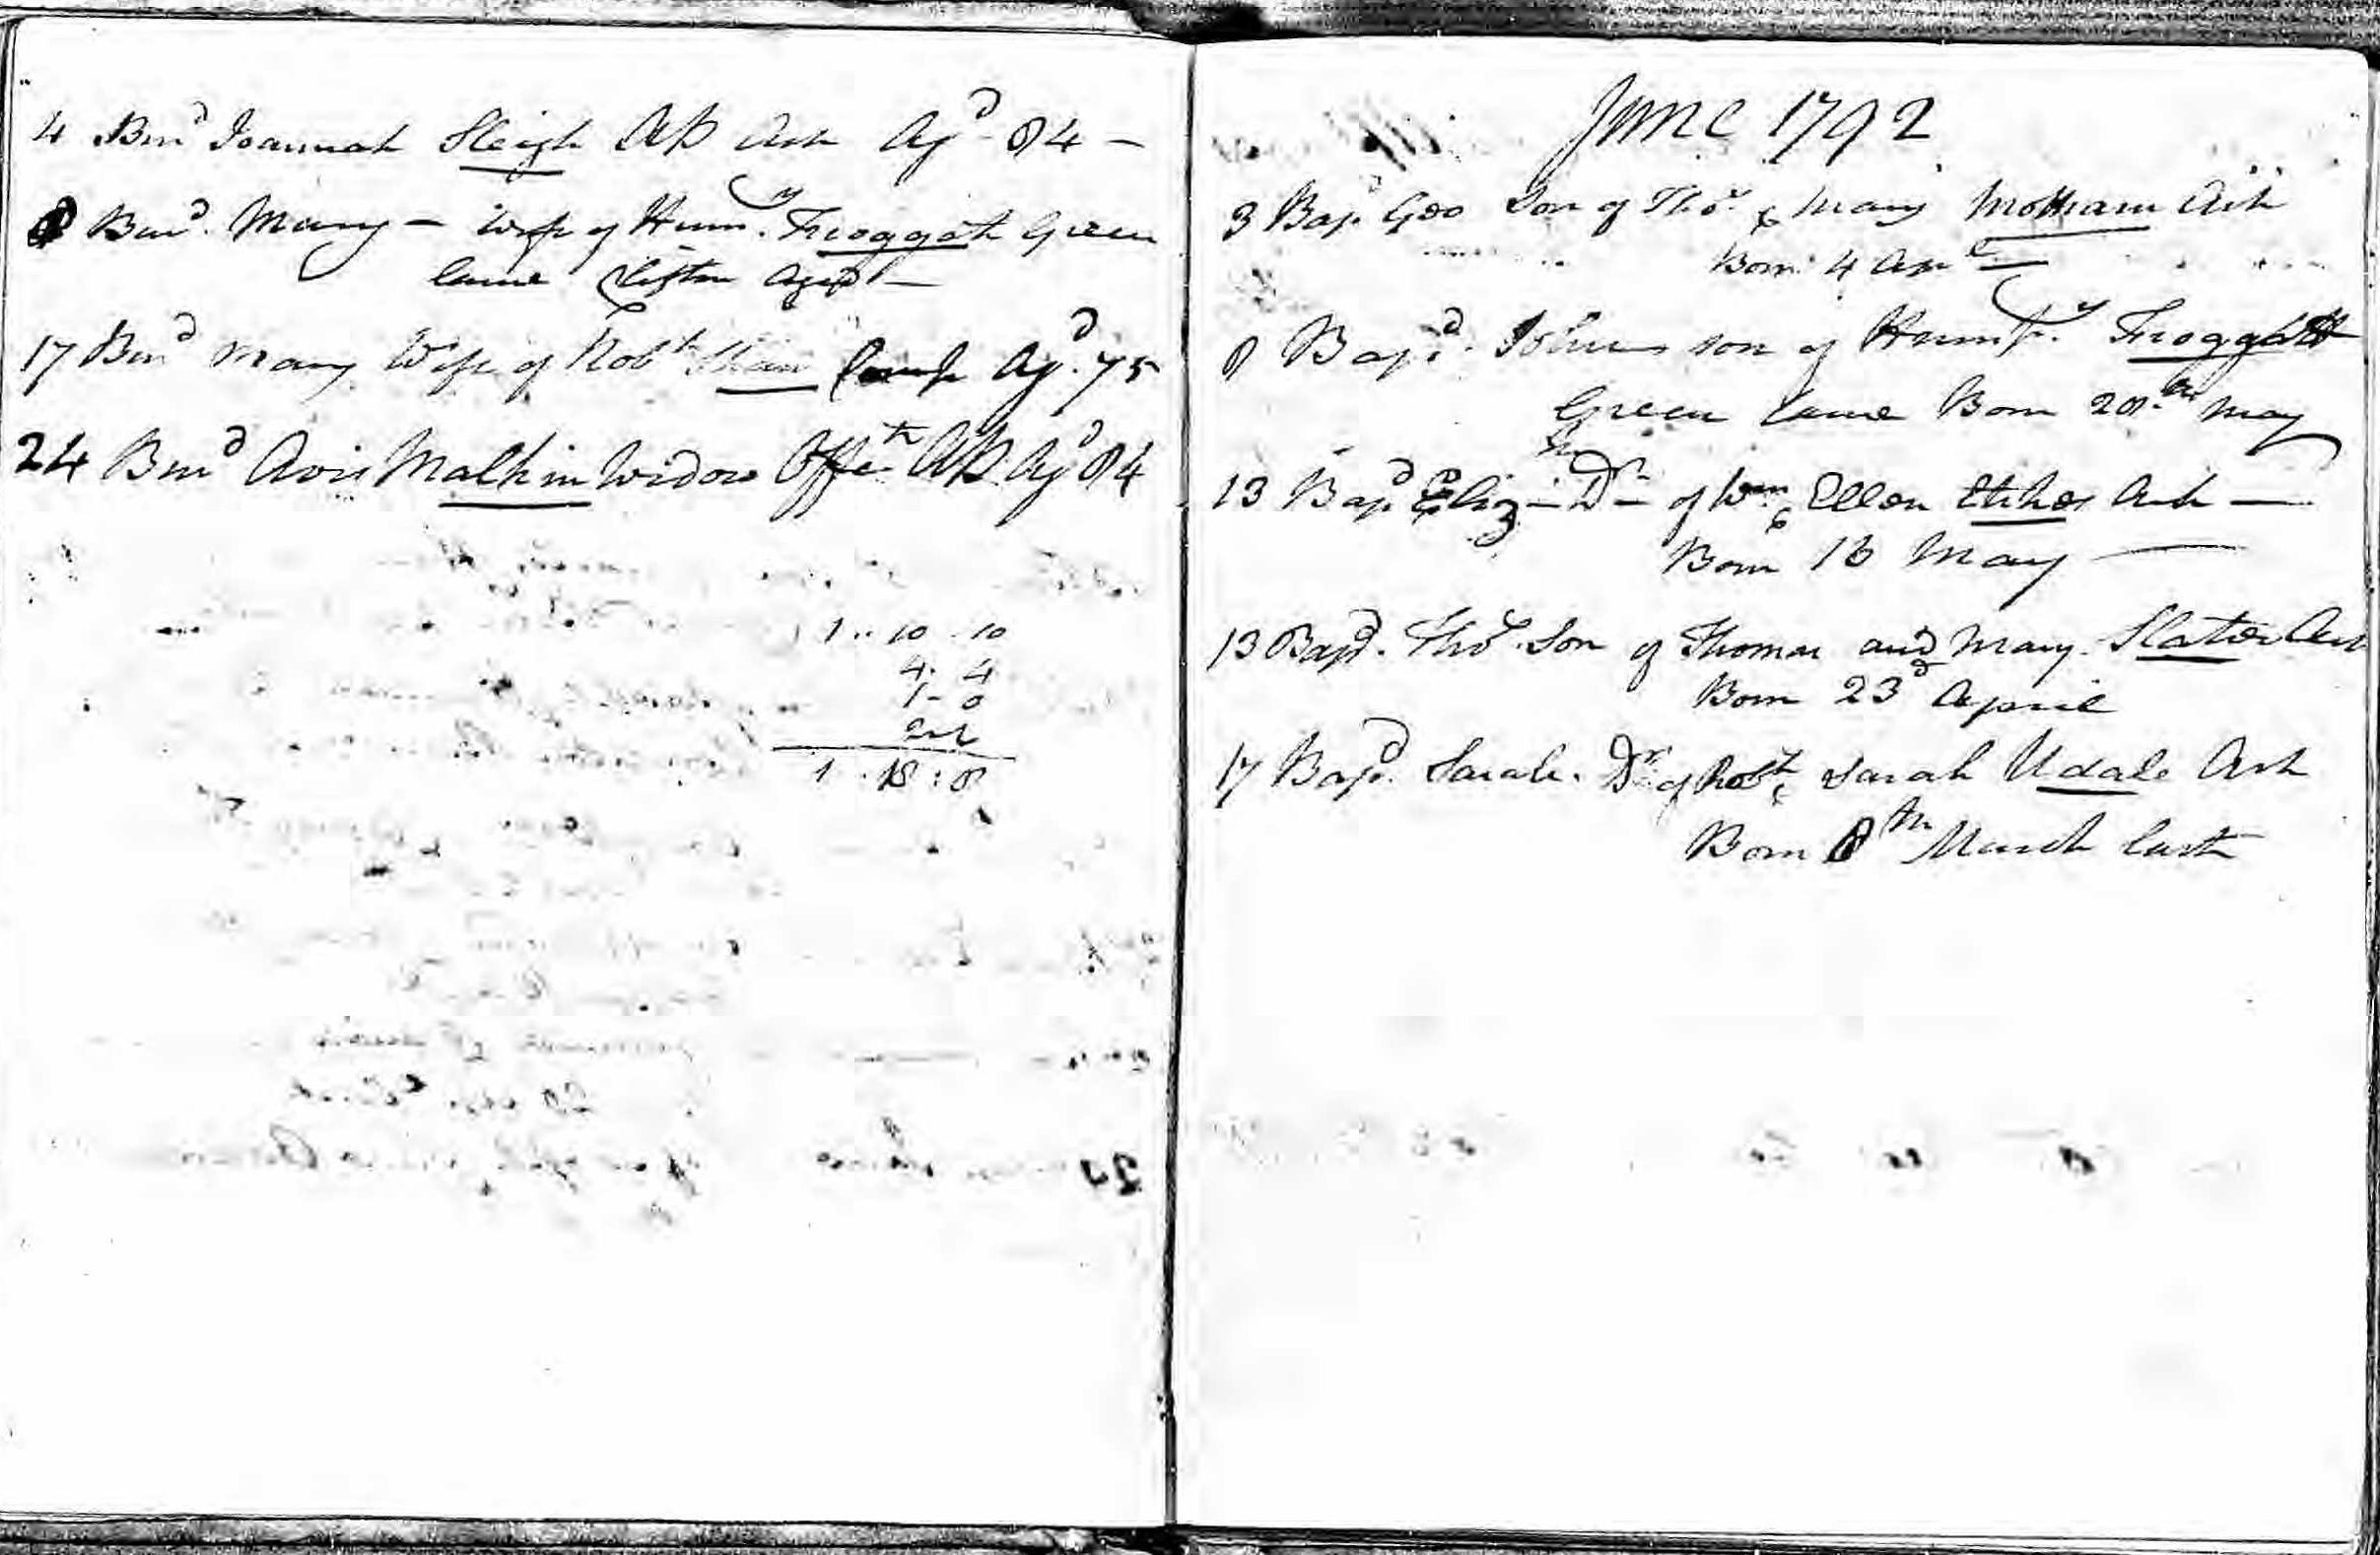 4 Burd Joannah Sleigh AP Ash Agd 84 –
8 Burd. Mary – Wife of Hum.y Froggatt Green
lane Clifton Aged –
17 Burd Mary Wife of Robt Shaw Agd. 75
24 Burd Avis Malkin Widow Offe.th AP Agd 84
1 .. 10 . 10
4 . 4
1 – 0
1 . 18 : 8
June 1792
3 Bapd Geo Son of Thos. & Mary Mottram Ash
Born 4 Apl –
8 Bapd. John son of Humpy. Froggatt
Green lane Born 28.th May
13 Bapd Eliz – Dr of Wm & Ellen Ash –
Born 16 May –
13 Bapd. Thos. Son of Thomas and Mary Slater Ash
Born 23d April
17 Bapd. Sarah. Dr of Robt & Sarah Udale Ash
Born 8th March last